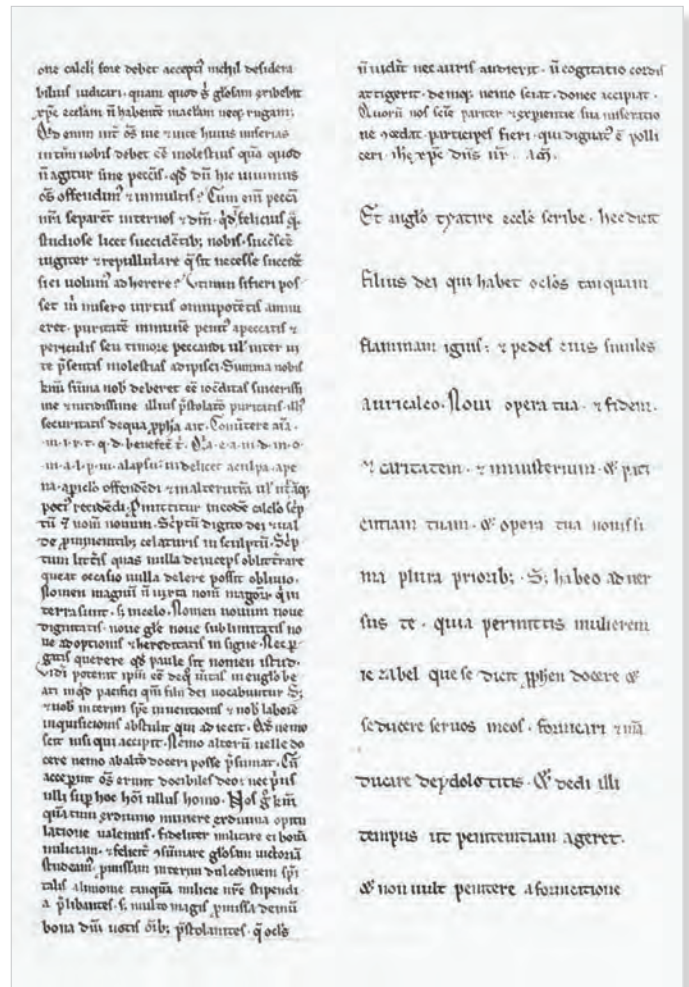 one calcl̄i fore debet accepti᷒ nichil desidera
bilius iudicari. quam quod ḡ glōsam exhibebit
xp̄c ecclām n̄ habentē maclām neq; rugam;
Qd enim int̄ ōs me ꝛ uite huius miserias
intim̄ nobis debet cē molestius quā quod
n̄ agitur sine pecc̄is. qd dū hic uiuimus
ōs offendim᷒ ꝛ in multis? Cum eni pecc̄a
nr̄i separēt inter nos ꝛ dm̄. qd felicius
studiose licet succidētib; nobis. succēscē
iugiter ꝛ repullulare q̄ sit necesse
uolum᷒ adherere? Utinam si fieri pos
set in̄ misero uirtus omnipotētis annu
eret. puritatē inmunē penit᷒ a peccatis ꝛ
periculis seu timore peccandi ul᷒ inter ui
te p̄sentis molestias adipisci. Summa nobis
km̄i sūma nob deberet cē iocūditas sinceriss
me ꝛ nitidissime illius p̄stolatō puritatis. illi᷒
securitatis de qua ꝓpha ait. Conūtere aīa.
m. i. r. t. q. d. benefec̄ t̄. Q̄a. e. a. m. d. m. o.
m. a. l. p. m. a lapsu: uidelicet a culpa. a pe
na. a pic̄lo offendēdi ꝛ in alterutrā
recidendi. Promittitur in eodē calc̄lo sc̄p
tū ꝛ nom̄ nouum. Sc̄ptū digito dei
celaturis insculptū. Sc̄p
tum litt̄is quas nulla deinceps oblitt̄rare
queat occasio nulla delere possit obliuio.
Nomen magnū n̄ iuxta nom̄ magn̄oꝝ q̄ in
terra sunt. s; in celo. Nomen nouum noue
dignitatis. noue gl̄e noue sublimitatis no
ue adoptionis ꝛ hereditatis insigne. Nec p
gatis querere qd paule sit nomen istud.
Vidi poterit ipm̄ cē de q̄ in euḡlo be
ati inqd pacifici qm̄ filii dei uocabuntur S;
ꝛ nob interim spē inuentionis ꝛ nob laborē
inquisicionis abstulit qui adiecit. Qd nemo
scit nisi qui accipit. Nemo alterū uelle do
cere nemo ab alt̄o doceri posse p̄sumat. Cū
accep̄int ōs erunt docibiles deo: nec p̄us
ulli sup hoc hōi ullus homo. Nos ḡ km̄i
quātum
latione ualemus. fideliter militare ei bonā
miliciam. ꝛ felicit̄ ꝯsūmare glōsam uictoriā
studeam᷒. ꝓmissam interim dulcedinem spi
talis alimonie tanquā milicie nr̄e stipendi
a p̄libantes. s; multo magis ꝓmissa demū
bona dni uotis ōib; p̄stolantes. q̄ ocl̄s
n̄ uidit nec auris audierit. n̄ cogitatio cordis
attigerit. deniq; nemo sciat. donec accipiat.
Quorū nos scīe pariter ꝛ experientie sua miseratio
ne ꝯcedat participes fieri. qui dignat᷒ ē polli
ceri. ih̄c xp̄c dn̄s nr̄. am̄.
Et angl̄o tyatire eccl̄e scribe. hec dicit
filius dei qui habet ocl̄os tanquam
flammam ignis: ꝛ pedes eius similes
auricalco. Noui opera tua. ꝛ fidem.
ꝛ caritatem. ꝛ ministerium. & paci
entiam tuam. & opera tua nouissi
ma plura priorib;. S; habeo aduer
sus te. quia permittis mulierem
iezabel que se dicit ꝓphen docere &
seducere seruos meos. fornicari ꝛ mā
ducare de ydolotitis. & dedi illi
tempus ut penitentiam ageret.
& non uult penitere a fornicatione